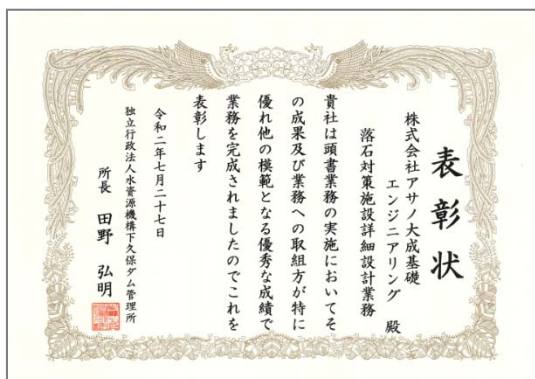 表彰状
株式会社アサノ大成基礎
エンジニアリング 殿
落石対策施設詳細設計業務
貴社は頭書業務の実施においてそ
の成果及び業務への取組方が特に
優れ他の模範となる優秀な成績で
業務を完成されましたのでこれを
表彰します
令和二年七月二十七日
独立行政法人水資源機構下久保ダム管理所
所長 田野 弘明